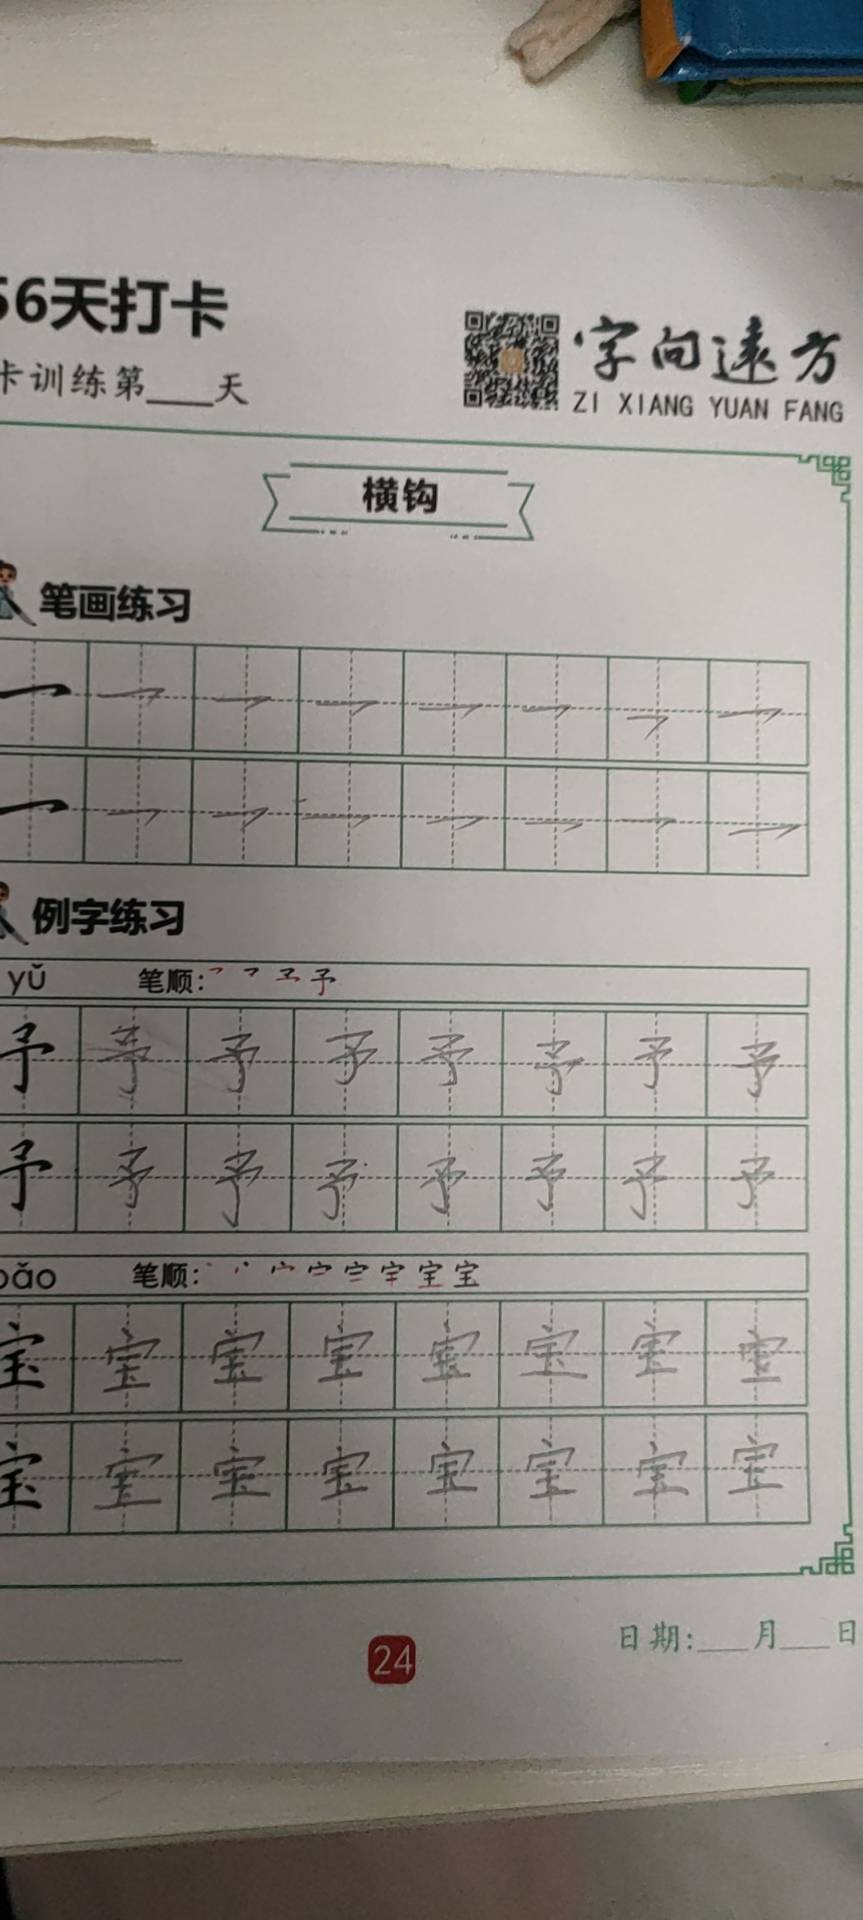 56天打卡
卡训练第____天
字向远方
ZI XIANG YUAN FANG
横钩
笔画练习
例字练习
yǔ 笔顺:
予 予 予 予 予 予 予 予
予 予 予 予 予 予 予 予
bǎo 笔顺:
宝 宝 宝 宝 宝 宝 宝 宝
宝 宝 宝 宝 宝 宝 宝 宝
24
日期:___月___日